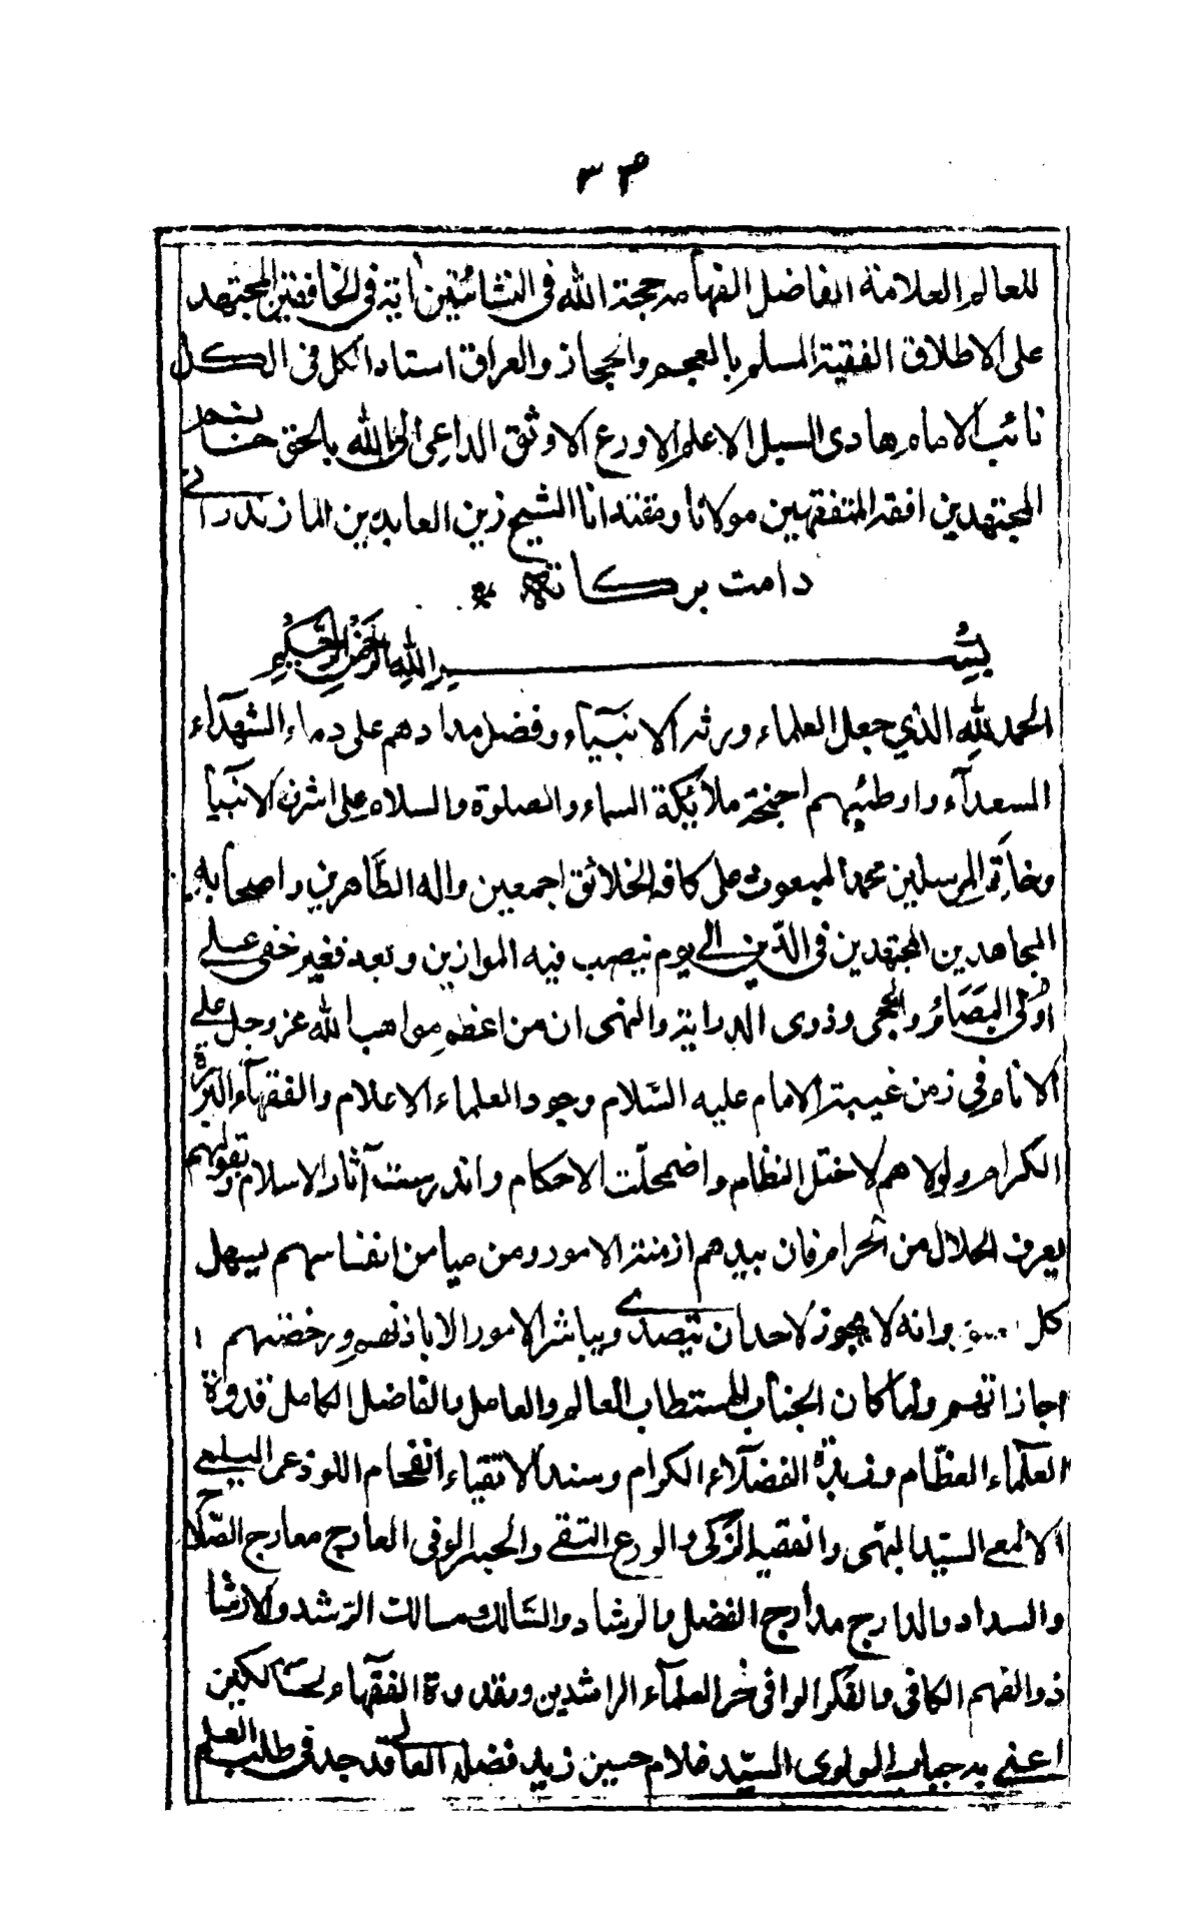 ٣٤
للعالم العلامة الفاضل الفهامه حجة الله فى النشأتين اية فى الخافقين المجتهد
على الاطلاق الفقيه المسلم بالعجم والحجاز والعراق استاد الكل فى الكل
نائب الامام هادى السبل الاعلم الاورع الاوثق الداعى الى الله بالحق جناب
المجتهدين افقه المتفقهين مولانا ومقتدانا الشيخ زين العابدين المازندرانى
دامت بركاته
بسم الله الرحمن الرحيم
الحمد لله الذي جعل العلماء ورثه الانبيآء وفضل مدادهم على دماء الشهدآء
السعدآء واوطئهم اجنحة ملائكة السماء والصلوة والسلام على اشرف الانبيا
وخاتم المرسلين محمد المبعوث على كافه الخلائق اجمعين واله الطاهرين واصحابه
المجاهدين المجتهدين فى الدّين الى يوم نيصب فيه الموازين وبعد فغير خفى على
اُولى البَصَائر والحجى وذوى الدراية والنهى ان من اعظم مواهب الله عز وجل على
الانام فى زمن غيبة الامام عليه السّلام وجود العلماء الاعلام والفقهآء البررة
الكرام ولولاهم لاختل النظام واضمحلّت الاحكام واندرست آثار الاسلام وبقولهم
يعرف الحلال من الحرام فان بيدهم ازمنة الامور ومن ميامن انفاسهم يسهل
كل وانه لا يجوز لاحد ان يتصدى ويباشر الامور الا باذنهم ورخصتهم ا
اجازاتهم ولما كان الجناب المستطاب العالم والعامل والفاضل الكامل قدوة
العلماء العظّام وزبدة الفضلآء الكرام وسند الاتقياء الفخام اللوذعى البلمعى
الالمعى السيّد البهى والفقيه الزكى والورع التقى والحبر الوفى العارج معارج الصّلاح
والسداد والدارج مدارج الفضل والرشاد والسّالك مسالك الرّشد والارشاد
ذو الفهم الكافى والفكر الوافى فخر العلمآء الراشدين وقدوة الفقهآء السالكين
اعنى به جناب المولوى السيّد غلام حسين زيد فضله العالى قد جد فى طلب العلم